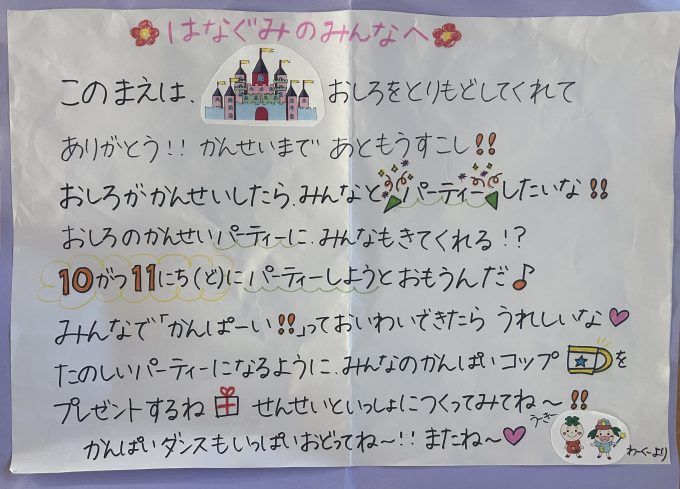 はなぐみのみんなへ
このまえは、おしろをとりもどしてくれて
ありがとう!! かんせいまで あともうすこし!!
おしろがかんせいしたら、みんなとパーティーしたいな!!
おしろのかんせいパーティーに、みんなもきてくれる!?
10がつ11にち(ど)にパーティーしようとおもうんだ♪
みんなで「かんぱーい!!」っておいわいできたら うれしいな♥
たのしいパーティーになるように、みんなのかんぱいコップを
プレゼントするね せんせいといっしょにつくってみてね〜!!
かんぱいダンスもいっぱいおどってね〜!! またね〜♥
うきー
わーくーより